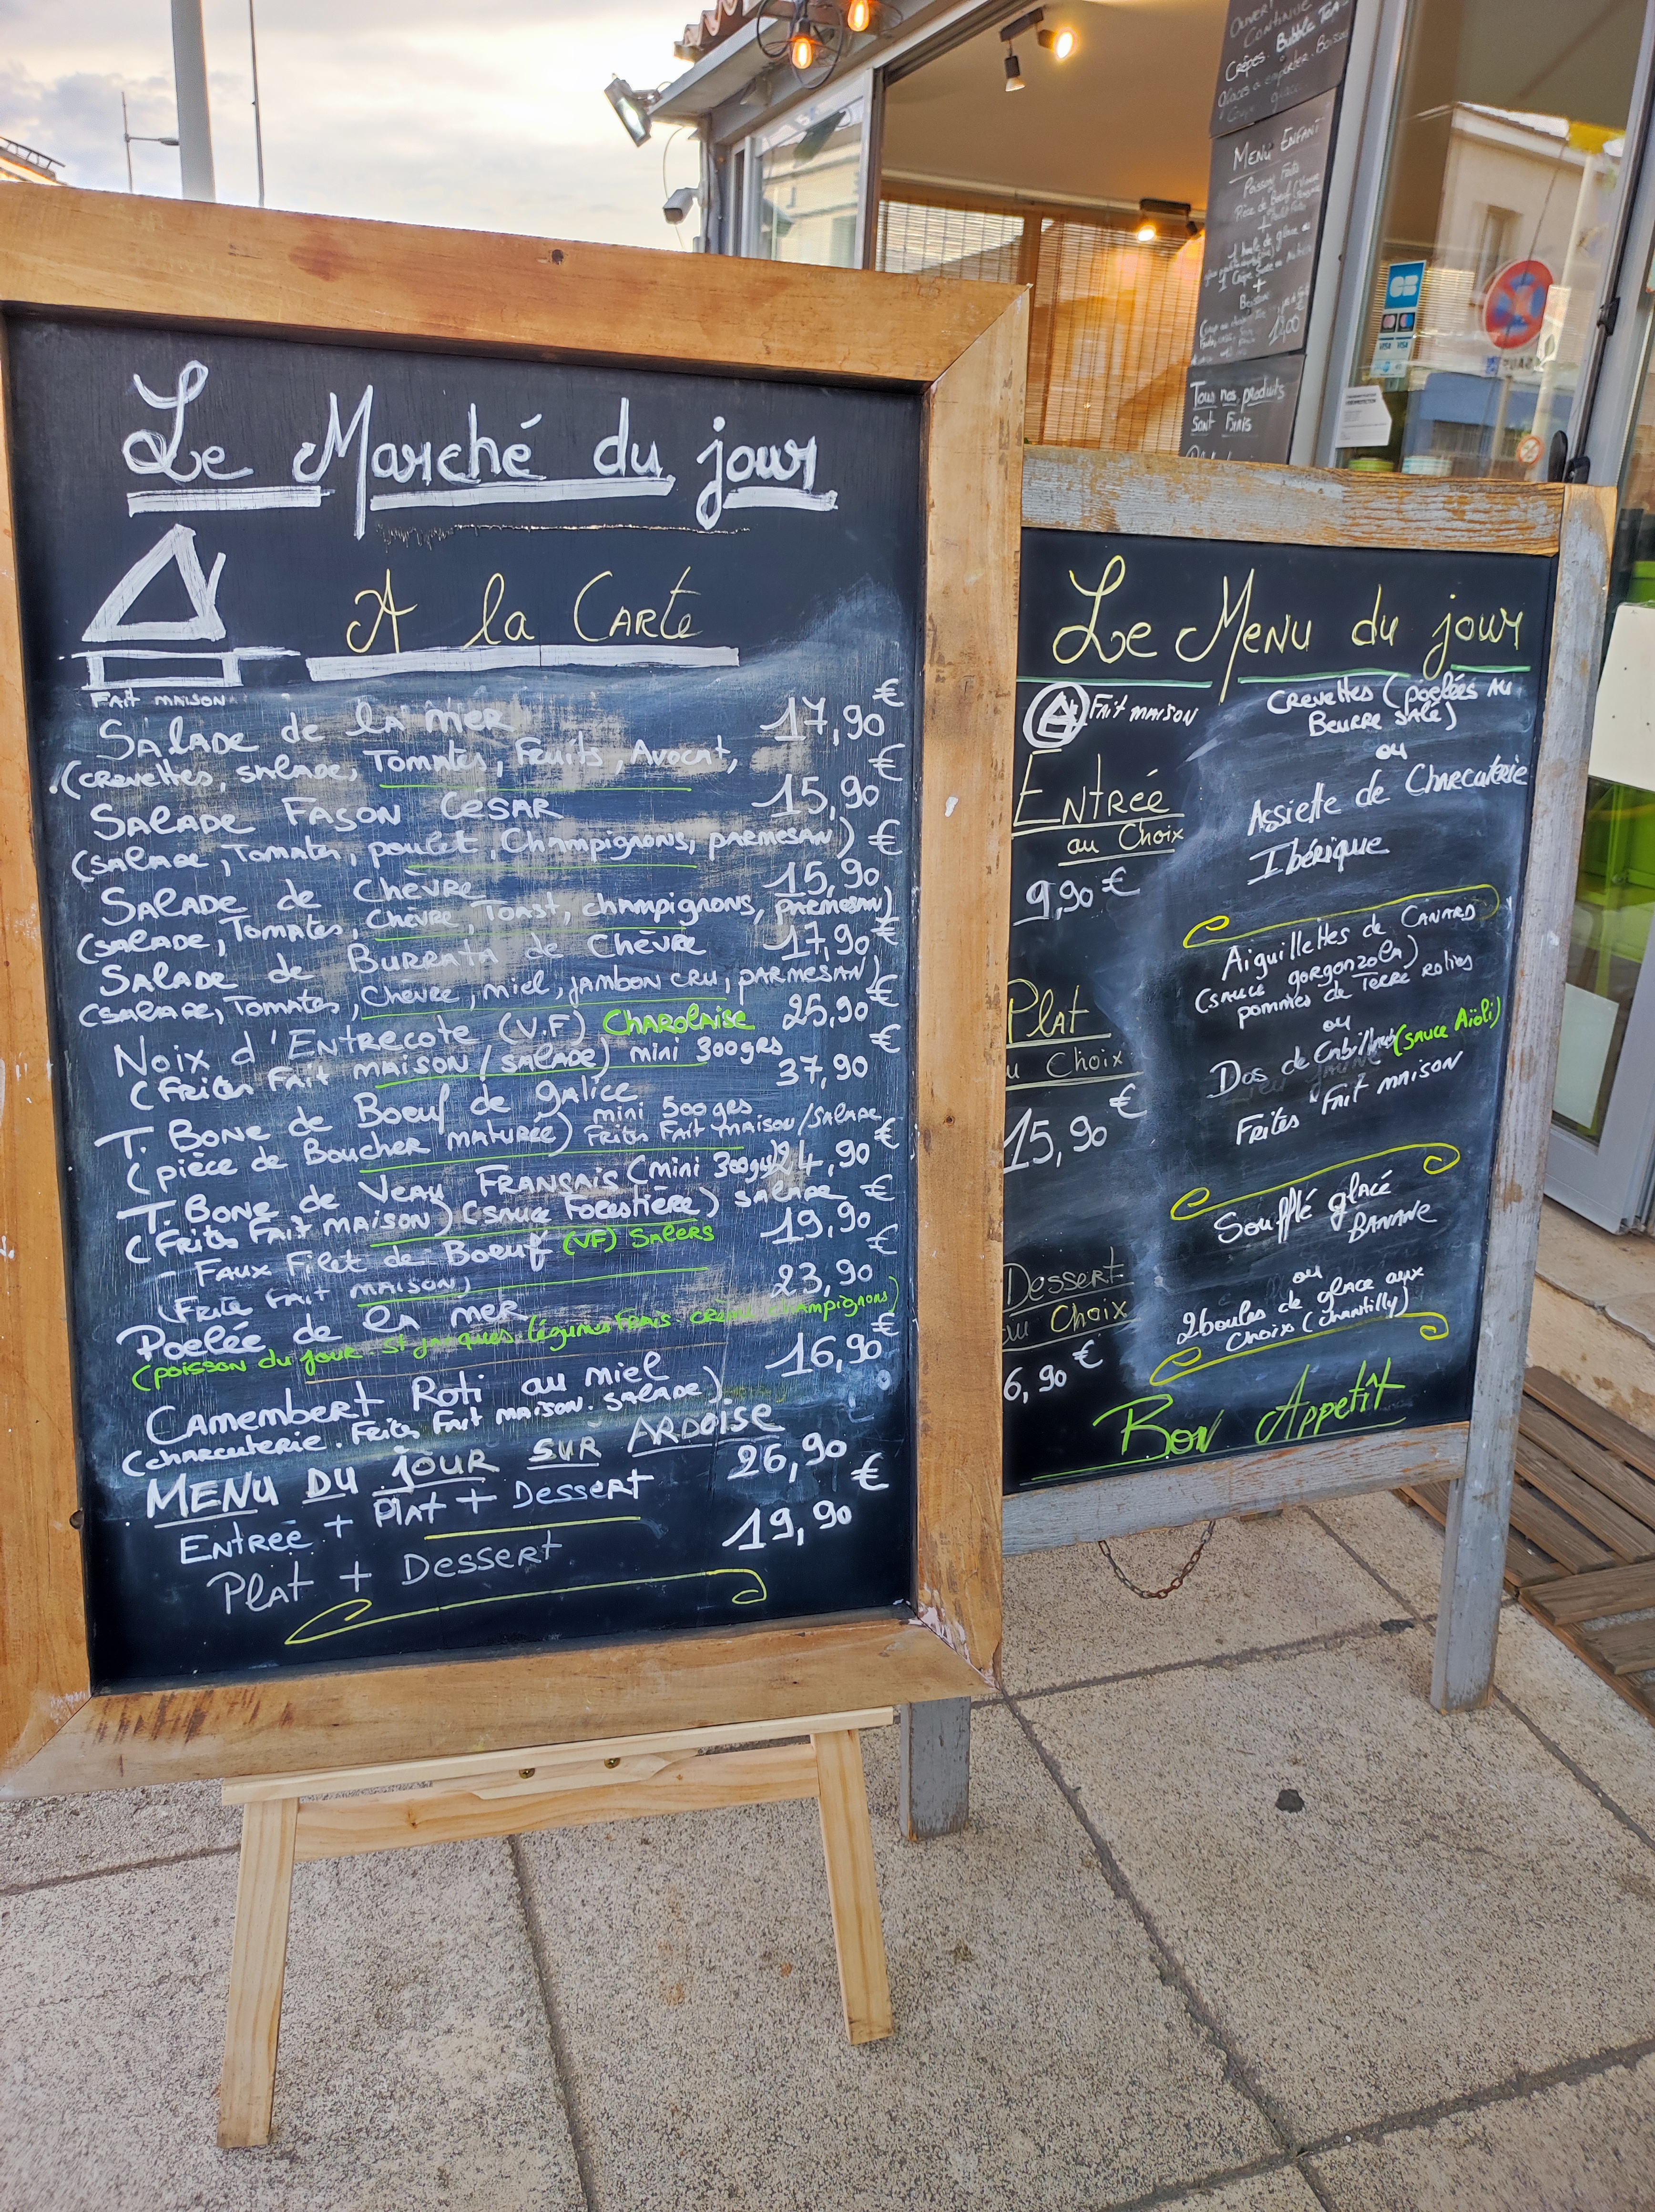 Le Marché du jour
A la Carte
Fait maison
Salade de la mer 17,90 €
(crevettes, salade, Tomates, Fruits, Avocat,
Salade Fason César 15,90 €
(salade, Tomates, poulet, Champignons, parmesan)
Salade de Chèvre 15,90 €
(salade, Tomates, Chèvre, Toast, champignons, parmesan)
Salade de Burrata de Chèvre 17,90 €
(salade, Tomates, Chèvre, miel, jambon cru, parmesan)
Noix d'Entrecote (V.F) Charolaise 25,90 €
(Frites Fait maison/salade) mini 300grs
T. Bone de Boeuf de galice 37,90 €
(pièce de Boucher maturée) mini 500grs Frites Fait maison/salade
T. Bone de Veau Fransais (mini 300grs) 24,90 €
(Frites Fait maison) (sauce Forestière) salade
- Faux Filet de Boeuf (VF) Salers 19,90 €
(Frite Fait maison)
Poelée de la mer 23,90 €
(poisson du jour. st jacques. légumes Frais. crème champignons)
Camembert Roti au miel 16,90 €
(charcuterie. Frites Fait maison. salade)
Menu du jour sur ardoise
Entrée + Plat + Dessert 26,90 €
Plat + Dessert 19,90
Le Menu du jour
Fait maison
Entrée
au Choix
9,90 €
Crevettes (poelées au
Beurre salé)
ou
Assiette de Charcuterie
Ibérique
Plat
u Choix
15,90 €
Aiguillettes de Canard
(sauce gorgonzola)
pommes de Terre roties
ou
Dos de Cabillaud (sauce Aïoli)
Frites Fait maison
Dessert
au Choix
6,90 €
Soufflé glacé
Banane
ou
2 boules de glace aux
choix (chantilly)
Bon Appetît
Ouvert
Continue
Crêpes. Bubble Tea
glaces a emporter. Boisson
Menu Enfant
+
1 boule de glace ou
+
Boisson
Tous nos produits
sont Frais
CB
VISA